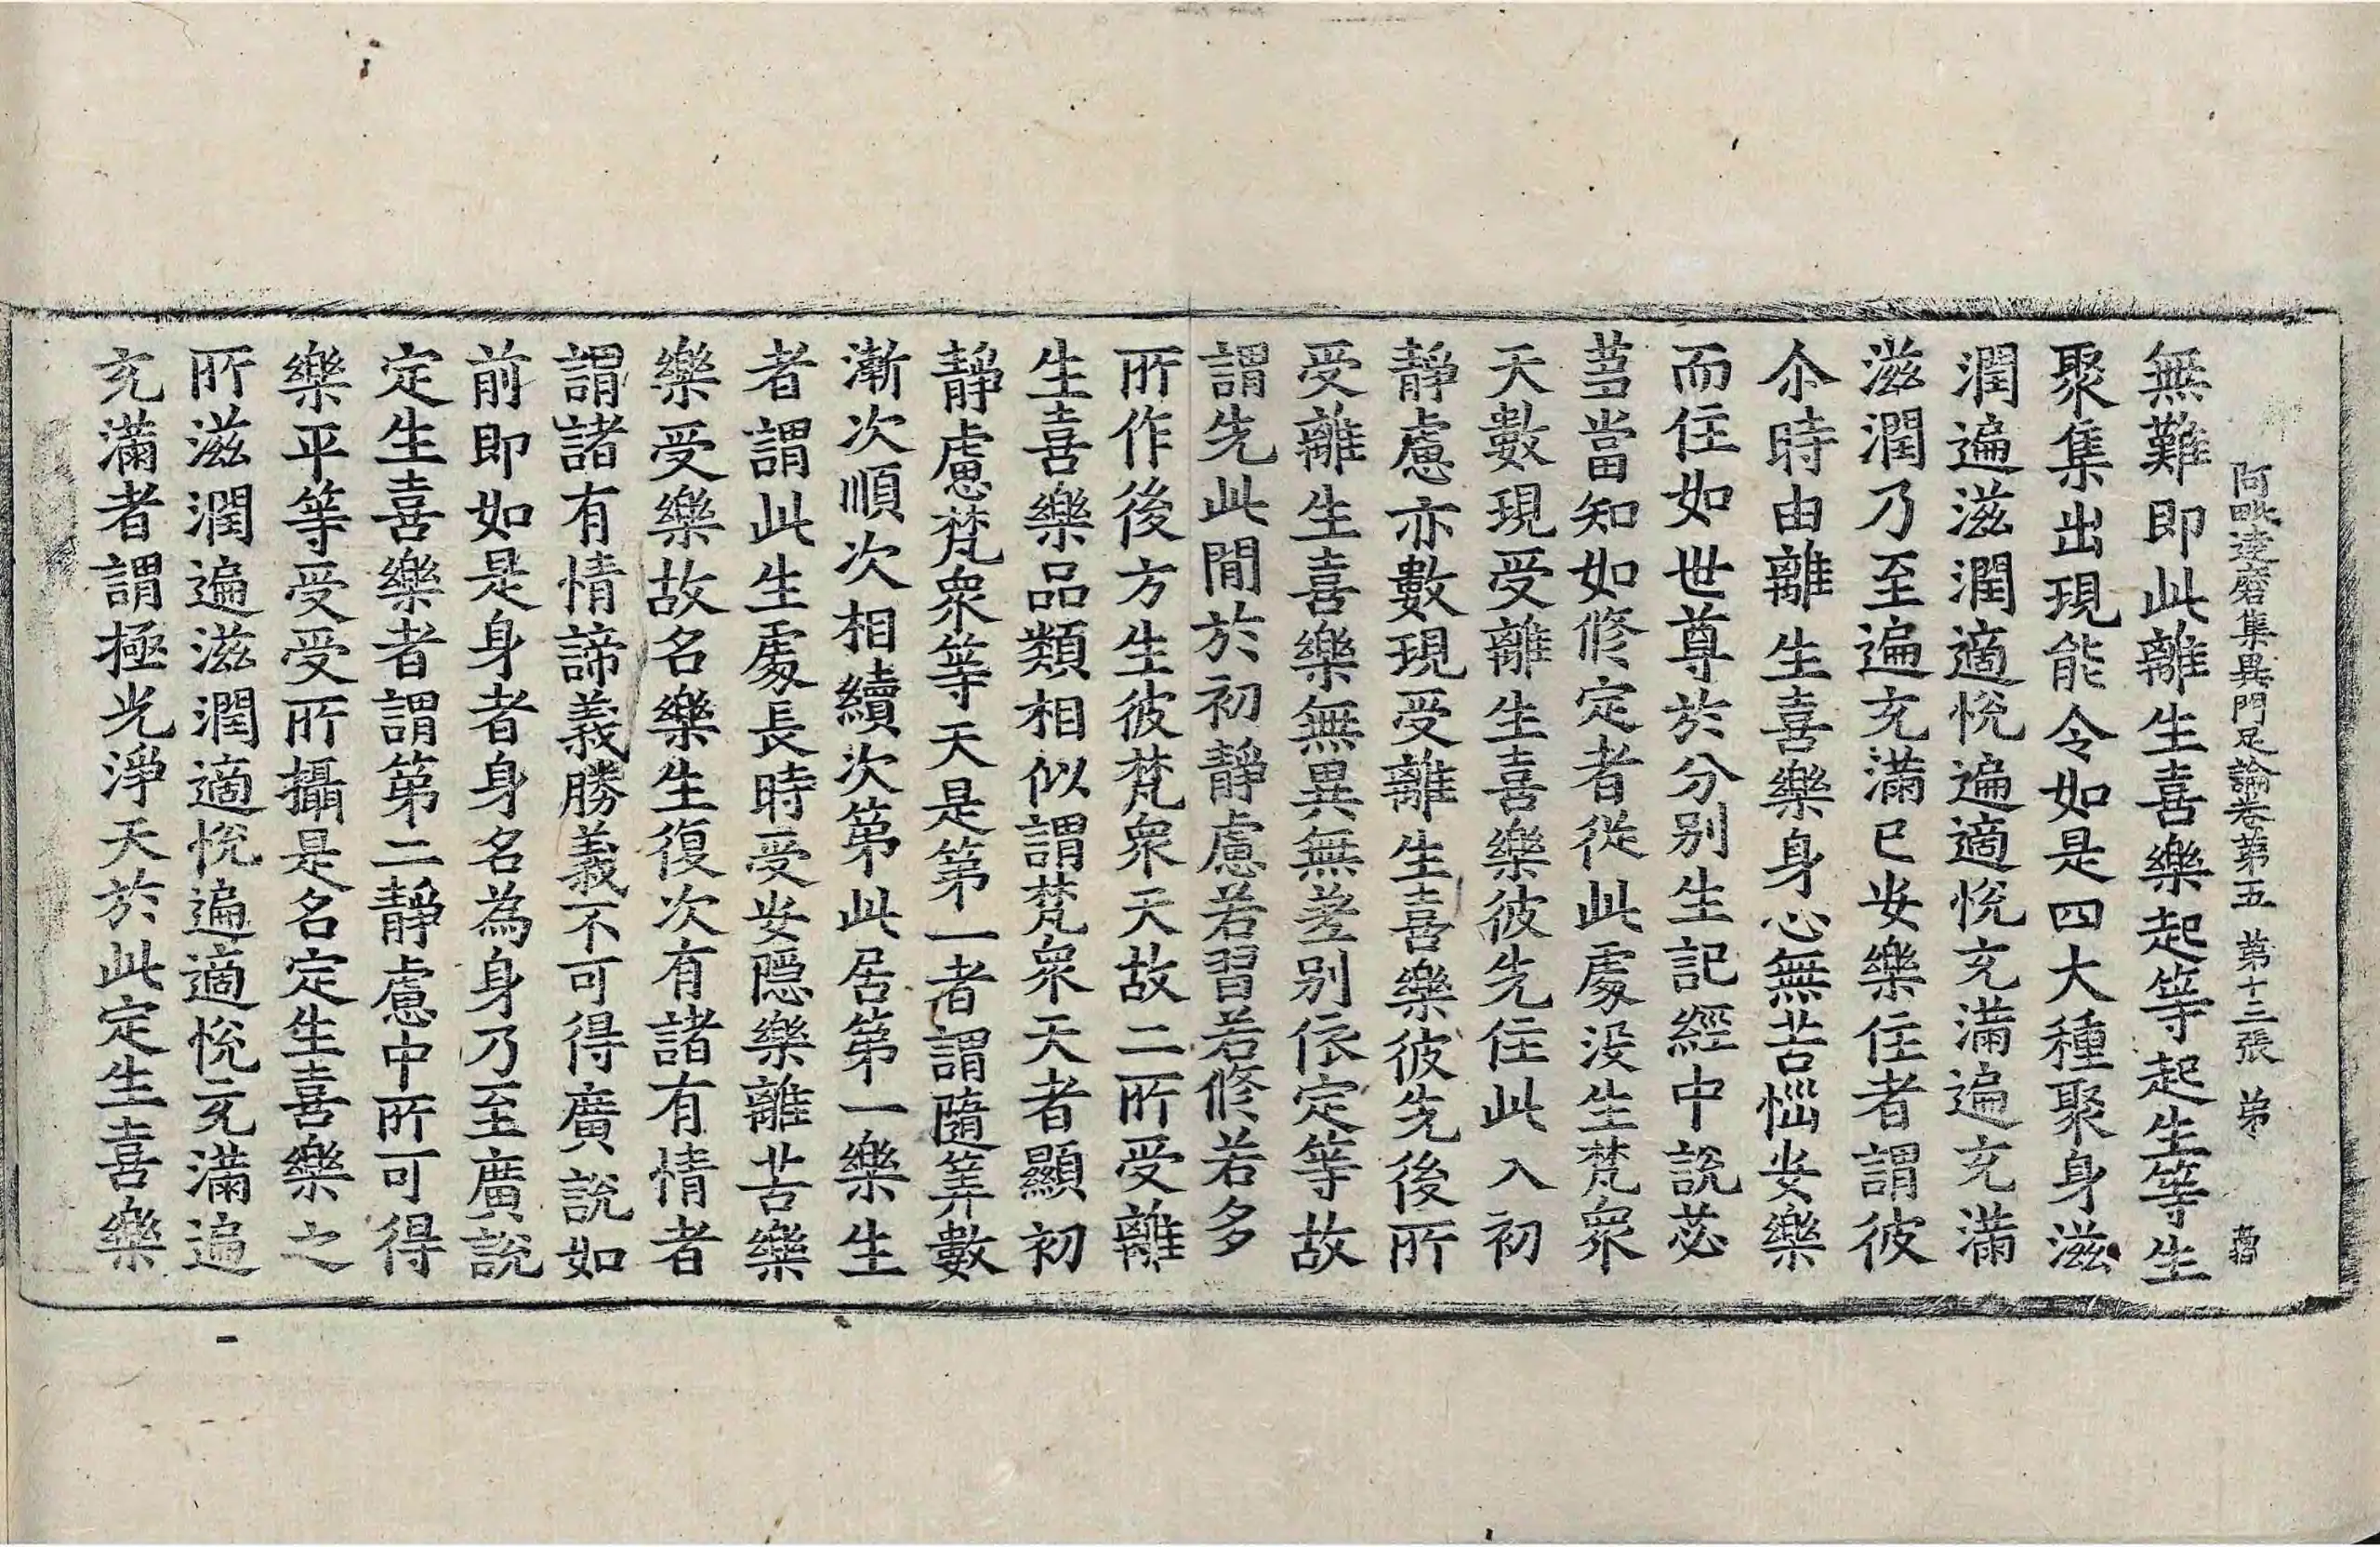 阿毗達磨集異門足論卷第五 第十三張 弟
無難即此離生喜樂起等起生等生
聚集出現能令如是四大種聚身滋
潤遍滋潤適恱遍適恱充滿遍充滿
滋潤乃至遍充滿已安樂住者謂彼
尒時由離生喜樂身心無苦惱安樂
而住如世尊於分別生記經中說苾
芻當知如修定者從此處没生梵衆
天數現受離生喜樂彼先住此入初
靜慮亦數現受離生喜樂彼先後所
受離生喜樂無異無差別依定等故
謂先此閒於初靜慮若習若修若多
所作後方生彼梵衆天故二所受離
生喜樂品類相似謂梵衆天者顯初
靜慮梵衆等天是第一者謂隨筭數
漸次順次相續次第此居第一樂生
者謂此生處長時受安隱樂離苦樂
樂受樂故名樂生復次有諸有情者
謂諸有情諦義勝義不可得廣說如
前即如是身者身名為身乃至廣說
定生喜樂者謂第二靜慮中所可得
樂平等受受所攝是名定生喜樂之
所滋潤遍滋潤適恱遍適恱充滿遍
充滿者謂極光淨天於此定生喜樂